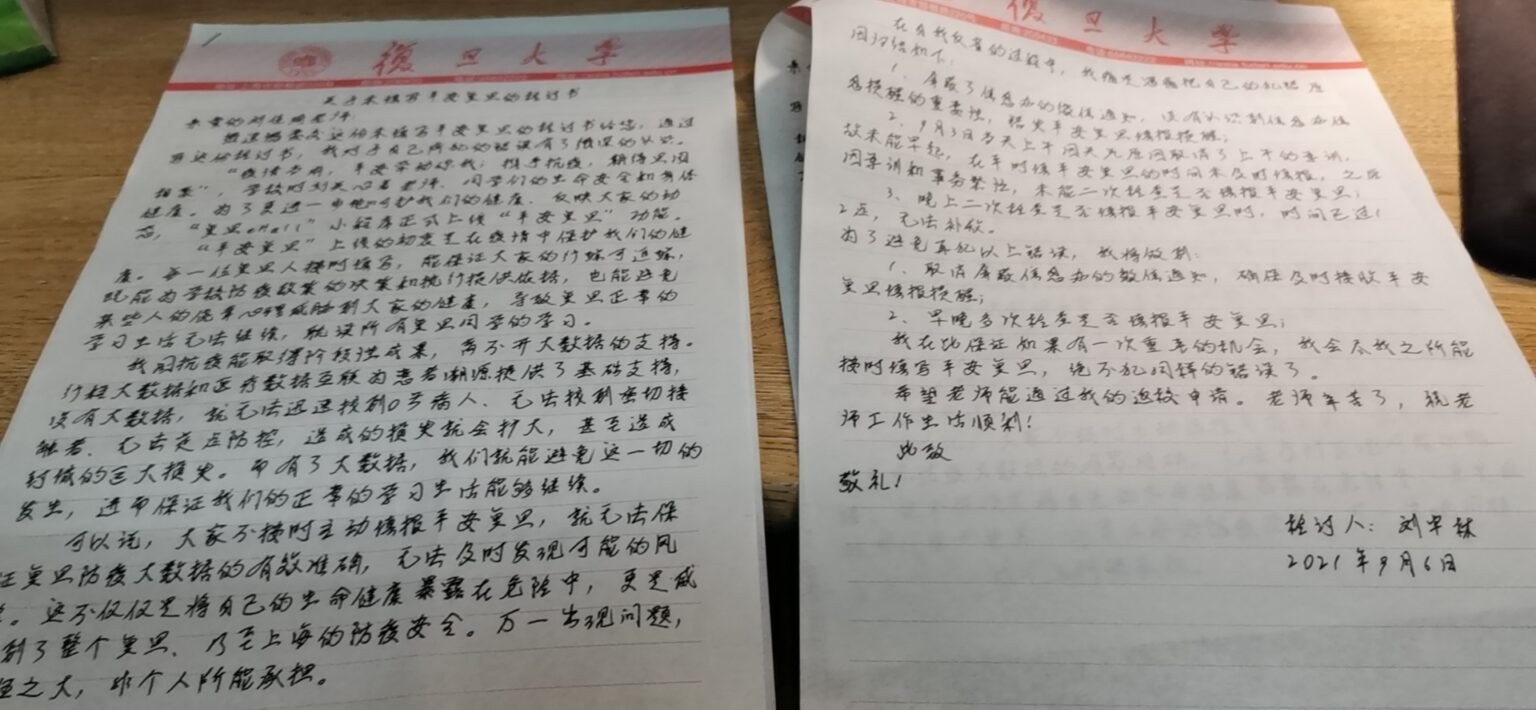 復旦大学
关于未填写平安复旦的检讨书
亲爱的刘佳明老师:
写这份检讨书，我对于自己所犯的错误有了很深的认识。
档案”，学校时刻关心着老师、同学们的生命安全和身体
健康。为了更进一步地呵护我们的健康、反映大家的动
态，“复旦eHall”小程序正式上线“平安复旦”功能。
“平安复旦”上线的初衷是在疫情中保护我们的健
康。每一位复旦人按时填写，能保证大家的行踪可追踪，
既能为学校防疫政策的决策和执行提供依据，也能避免
某些人的侥幸心理威胁到大家的健康，导致复旦正常的
学习生活无法继续，耽误所有复旦同学的学习。
我国抗疫能取得阶段性成果，离不开大数据的支持。
行程大数据和医疗数据互联为患者溯源提供了基础支持，
没有大数据，就无法迅速找到0号病人、无法找到密切接
触者、无法定点防控，造成的损失就会扩大，甚至造成
封城的巨大损失。而有了大数据，我们就能避免这一切的
发生，进而保证我们的正常的学习生活能够继续。
可以说，大家不按时主动填报平安复旦，就无法保
证复旦防疫大数据的有效准确，无法及时发现可能的风
。这不仅仅是将自己的生命健康暴露在危险中，更是威
到了整个复旦、乃至上海的防疫安全。万一出现问题，
之大，非个人所能承担。
復旦大学
在自我反省的过程中，我痛定思痛把自己的犯错原
因归结如下:
1、屏蔽了信息办的微信通知，没有认识到信息办信
息提醒的重要性，错失平安复旦填报提醒;
2、9月3日当天上午因天气原因取消了上午的军训，
故未能早起，在平时填平安复旦的时间未及时填报，之后
因军训和事务繁忙，未能二次检查是否填报平安复旦;
3、晚上二次检查是否填报平安复旦时，时间已过1
2点，无法补救。
为了避免再犯以上错误，我将做到:
1、取消屏蔽信息办的微信通知，确保及时接收平安
复旦填报提醒;
2、早晚多次检查是否填报平安复旦;
我在此保证如果有一次重来的机会，我会尽我之所能
按时填写平安复旦，绝不犯同样的错误了。
希望老师能通过我的返校申请。老师辛苦了，祝老
师工作生活顺利!
此致
敬礼!
检讨人: 刘宇林
2021年9月6日